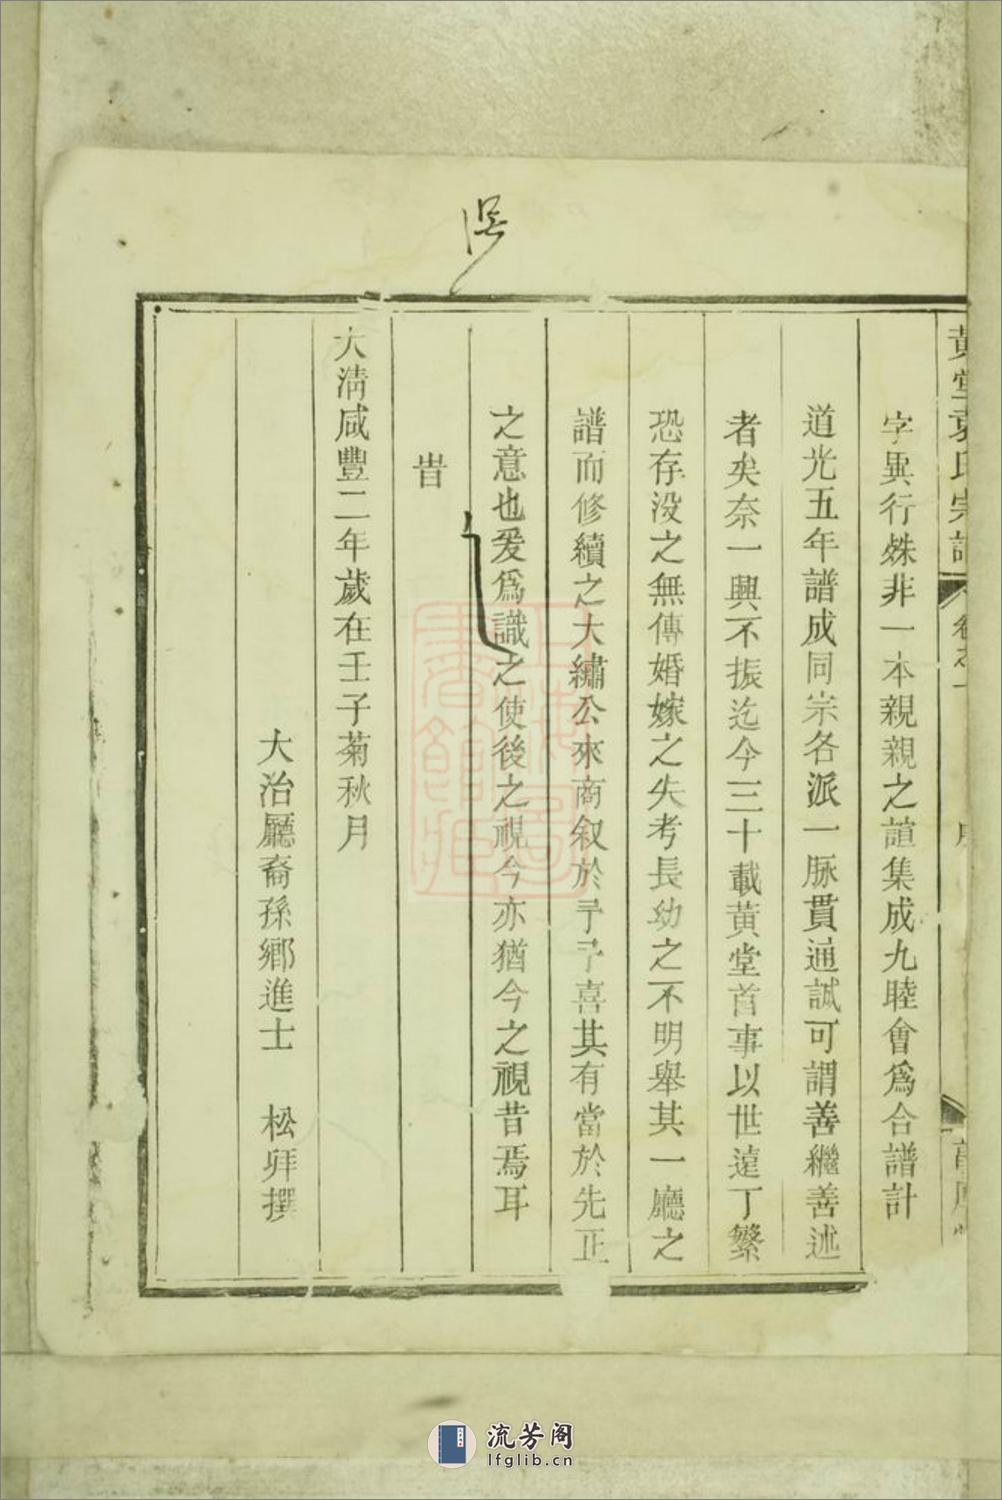 黄堂袁氏宗譜
卷之一
字異行殊非一本親親之誼集成九睦會爲合譜計
道光五年譜成同宗各派一脉貫通誠可謂善繼善述
者矣奈一興不振迄今三十載黄堂首事以世遠丁繁
恐存没之無傳婚嫁之失考長幼之不明舉其一廳之
譜而修續之大繡公來商叙於予予喜其有當於先正
之意也爰爲識之使後之視今亦猶今之視昔焉耳
旹
大淸咸豐二年歲在壬子菊秋月
大治廳裔孫鄉進士 松拜撰
误
流芳阁
lfglib.cn